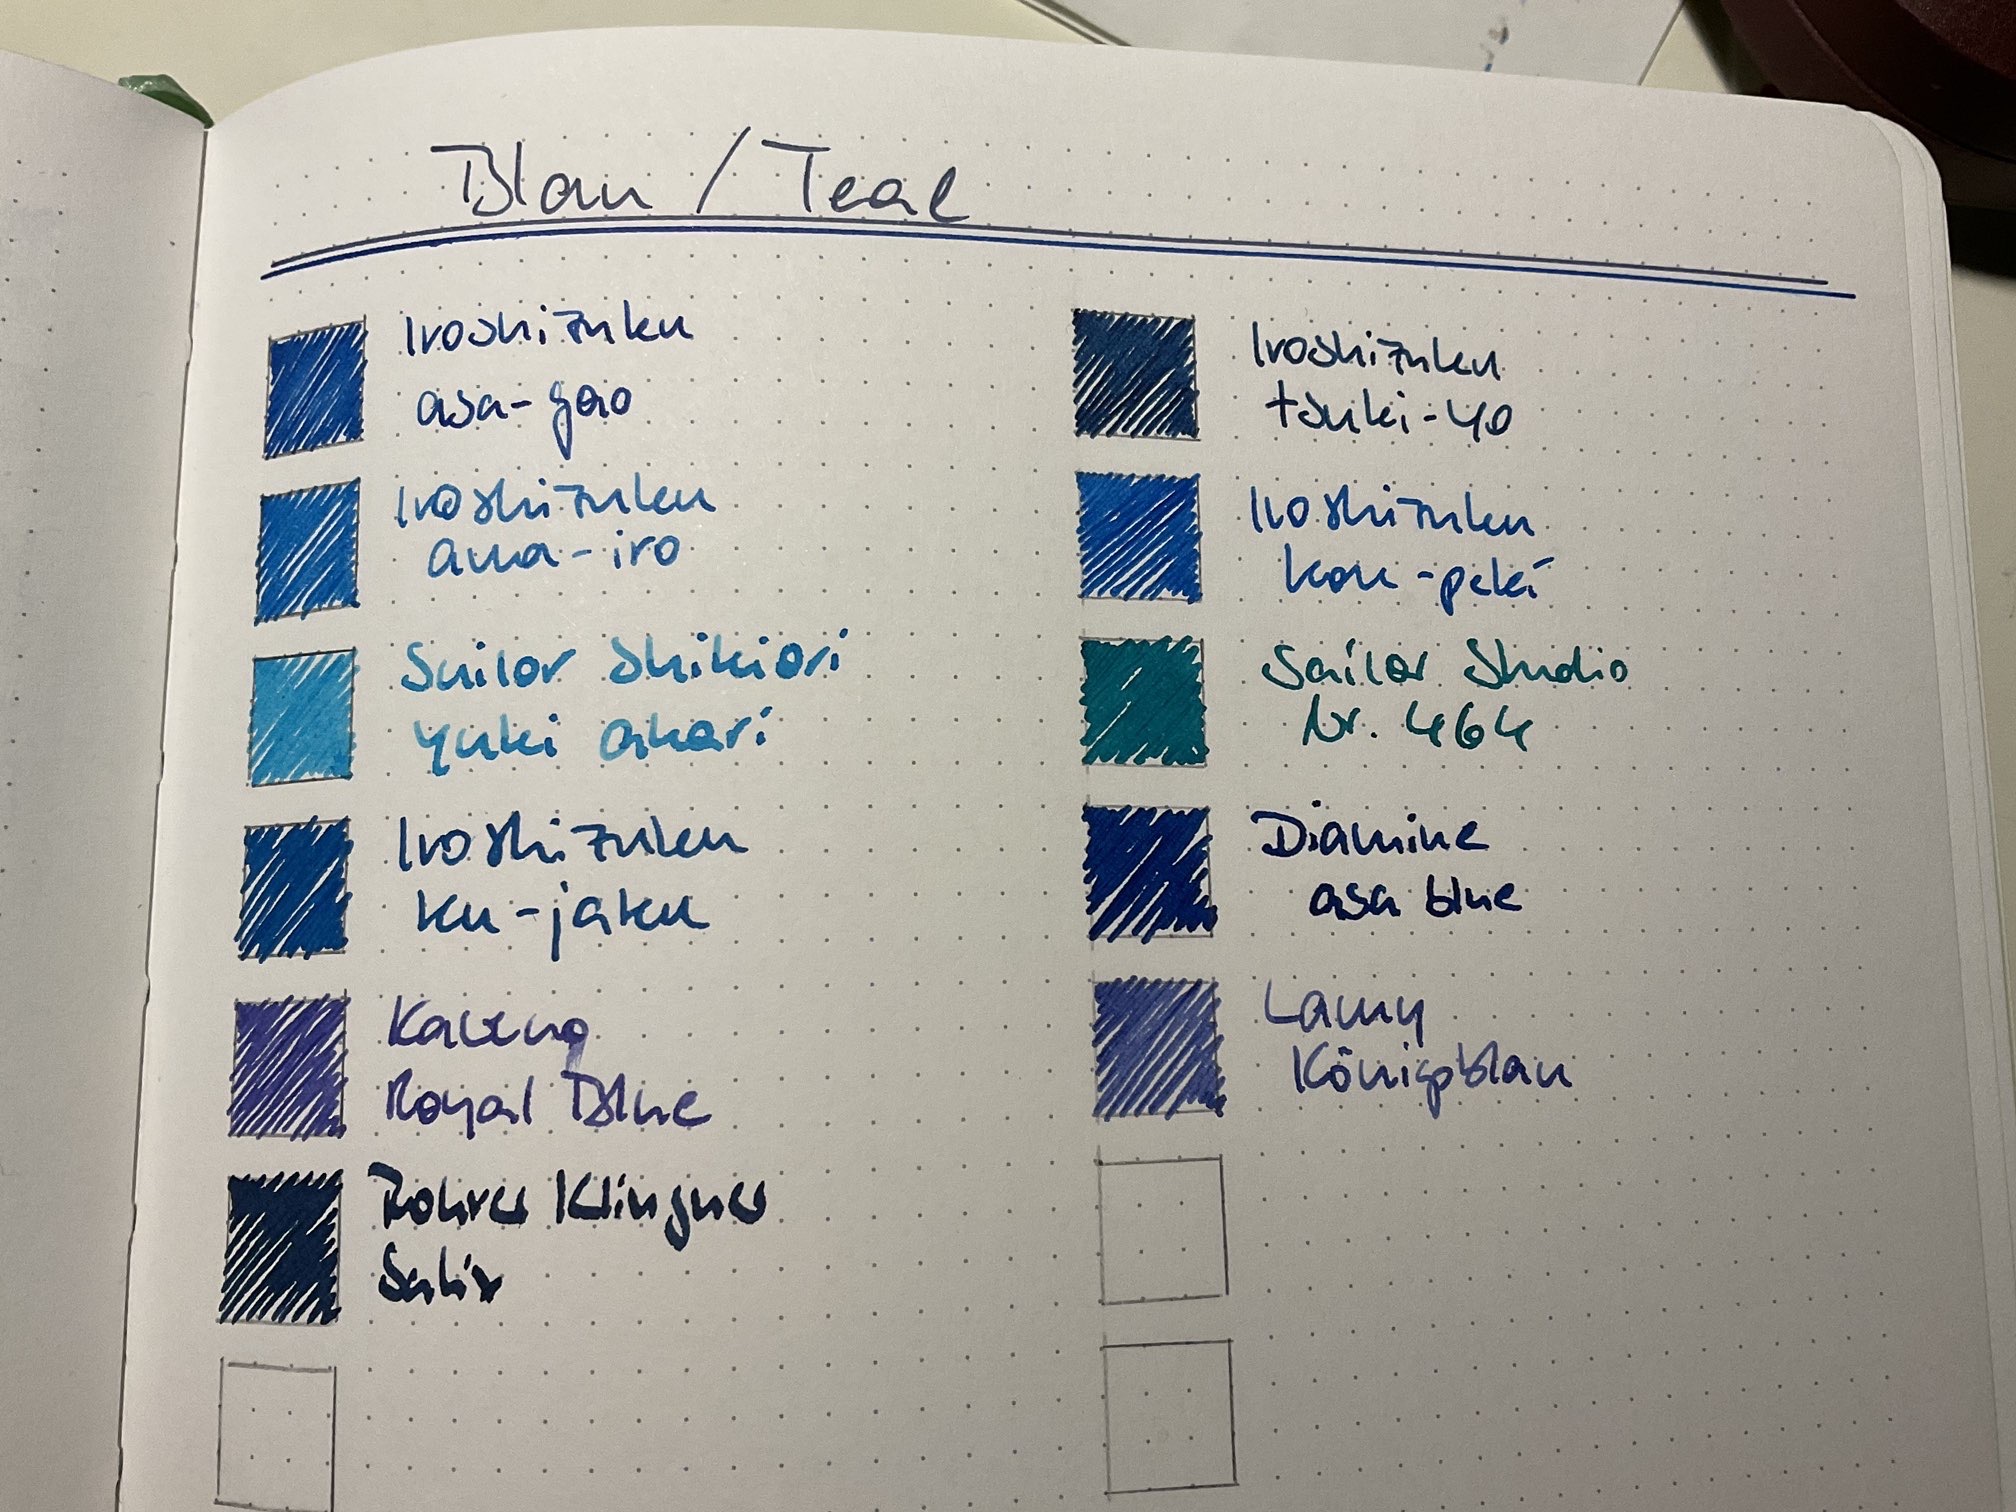 Blau / Teal
Iroshizuku
asa-gao
Iroshizuku
ama-iro
Sailor Shikiori
yuki akari
Iroshizuku
ku-jaku
Kaweco
Royal Blue
Rohrer Klingner
Salix
Iroshizuku
tsuki-yo
Iroshizuku
kon-peki
Sailor Studio
Nr. 464
Diamine
asa blue
Lamy
Königsblau